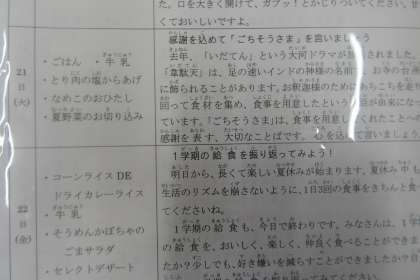 た。口を大きく開けて、ガブッ！とかじりついてください。
くておいしいですよ。
21
日
(火)
・ごはん　・牛乳
・とり肉の塩からあげ
・なめこのおひたし
・夏野菜のお切り込み
感謝を込めて「ごちそうさま」を言いましょう
去年、「いだてん」という大河ドラマが
「韋駄天」は、足の速いインドの神様の名前
に飾られることがあります。お釈迦様のためにあちこちを走り
回って食材を集め、食事を用意したという
ています。「ごちそうさま」は、食事を用意してくれた
感謝を表す、大切なことばです。心を込めて言いましょう
22
日
(金)
・コーンライスDE
ドライカレーライス
・牛乳
・そうめんかぼちゃの
ごまサラダ
・セレクトデザート
1学期の給食を振り返ってみよう！
明日から、長くて楽しい夏休みが始まります。夏休み中も
生活のリズムを崩さないように、1日3回の食事をきちんと
てくださいね。
1学期の給食も、今日で終わりです。みなさんは、1学期
の給食を、おいしく、楽しく、仲良く食べることができま
たか？少しでも、好き嫌いを減らすことができましたか？